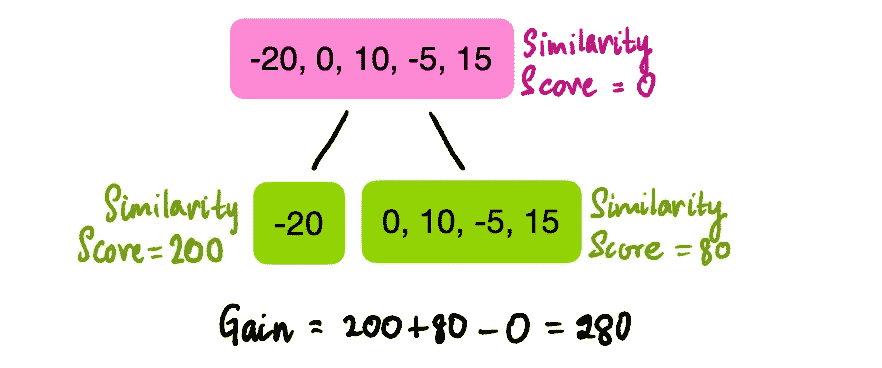 -20, 0, 10, -5, 15
Similarity
Score = 0
Similarity
Score = 200
-20
0, 10, -5, 15
Similarity
Score = 80
Gain = 200 + 80 - 0 = 280